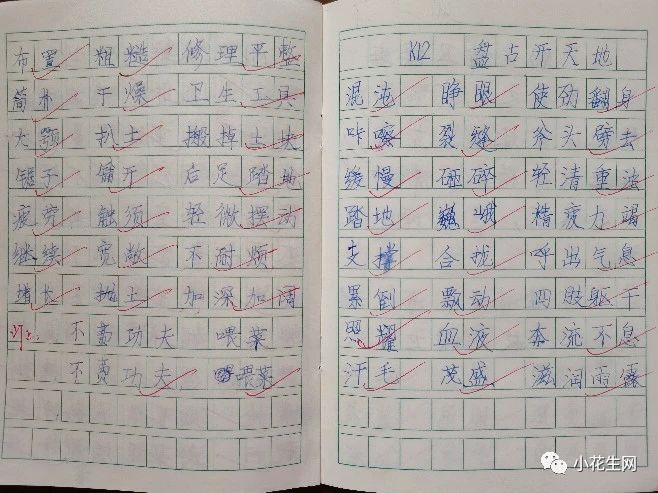 布置 粗糙 修理 平整
简朴 干燥 卫生 工具
大颚 扒土 搬掉 土块
锯子 后足 踏地
疲劳 触须 轻微 摆动
继续 宽敞 不耐烦
增长 抛土 加深 加阔
订正: 不费功夫 喂菜
不费功夫 喂菜
K12 盘古开天地
混沌 睁眼 使劲 翻身
咔嚓 裂缝 斧头 劈去
缓慢 破碎 轻清重浊
踏地 巍峨 精疲力竭
支撑 合拢 呼出 气息
累倒 飘动 四肢 躯干
照耀 血液 奔流不息
汗毛 茂盛 滋润 雨露
小花生网